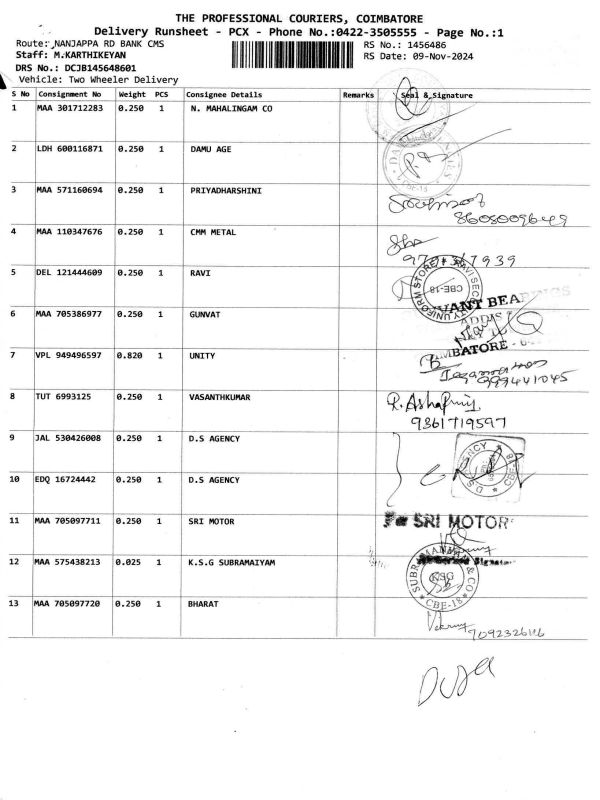 THE PROFESSIONAL COURIERS, COIMBATORE
Delivery Runsheet - PCX - Phone No.:0422-3505555 - Page No.:1
Route: NANJAPPA RD BANK CMS RS No.: 1456486
Staff: M.KARTHIKEYAN RS Date: 09-Nov-2024
DRS No.: DCJB145648601
Vehicle: Two Wheeler Delivery
S No Consignment No Weight PCS Consignee Details Remarks Seal & Signature
1 MAA 301712283 0.250 1 N. MAHALINGAM CO
2 LDH 600116871 0.250 1 DAMU AGE
3 MAA 571160694 0.250 1 PRIYADHARSHINI
8608009649
4 MAA 110347676 0.250 1 CMM METAL
5 DEL 121444609 0.250 1 RAVI
RAVI SECURITY UNIFORM STORE
CBE-18
6 MAA 705386977 0.250 1 GUNVAT
VANT BEARINGS
MBATORE -
7 VPL 949496597 0.820 1 UNITY
999441045
8 TUT 6993125 0.250 1 VASANTHKUMAR
9361719597
9 JAL 530426008 0.250 1 D.S AGENCY
10 EDQ 16724442 0.250 1 D.S AGENCY
11 MAA 705097711 0.250 1 SRI MOTOR
For SRI MOTOR
12 MAA 575438213 0.025 1 K.S.G SUBRAMAIYAM
KSG
CBE-18
13 MAA 705097720 0.250 1 BHARAT